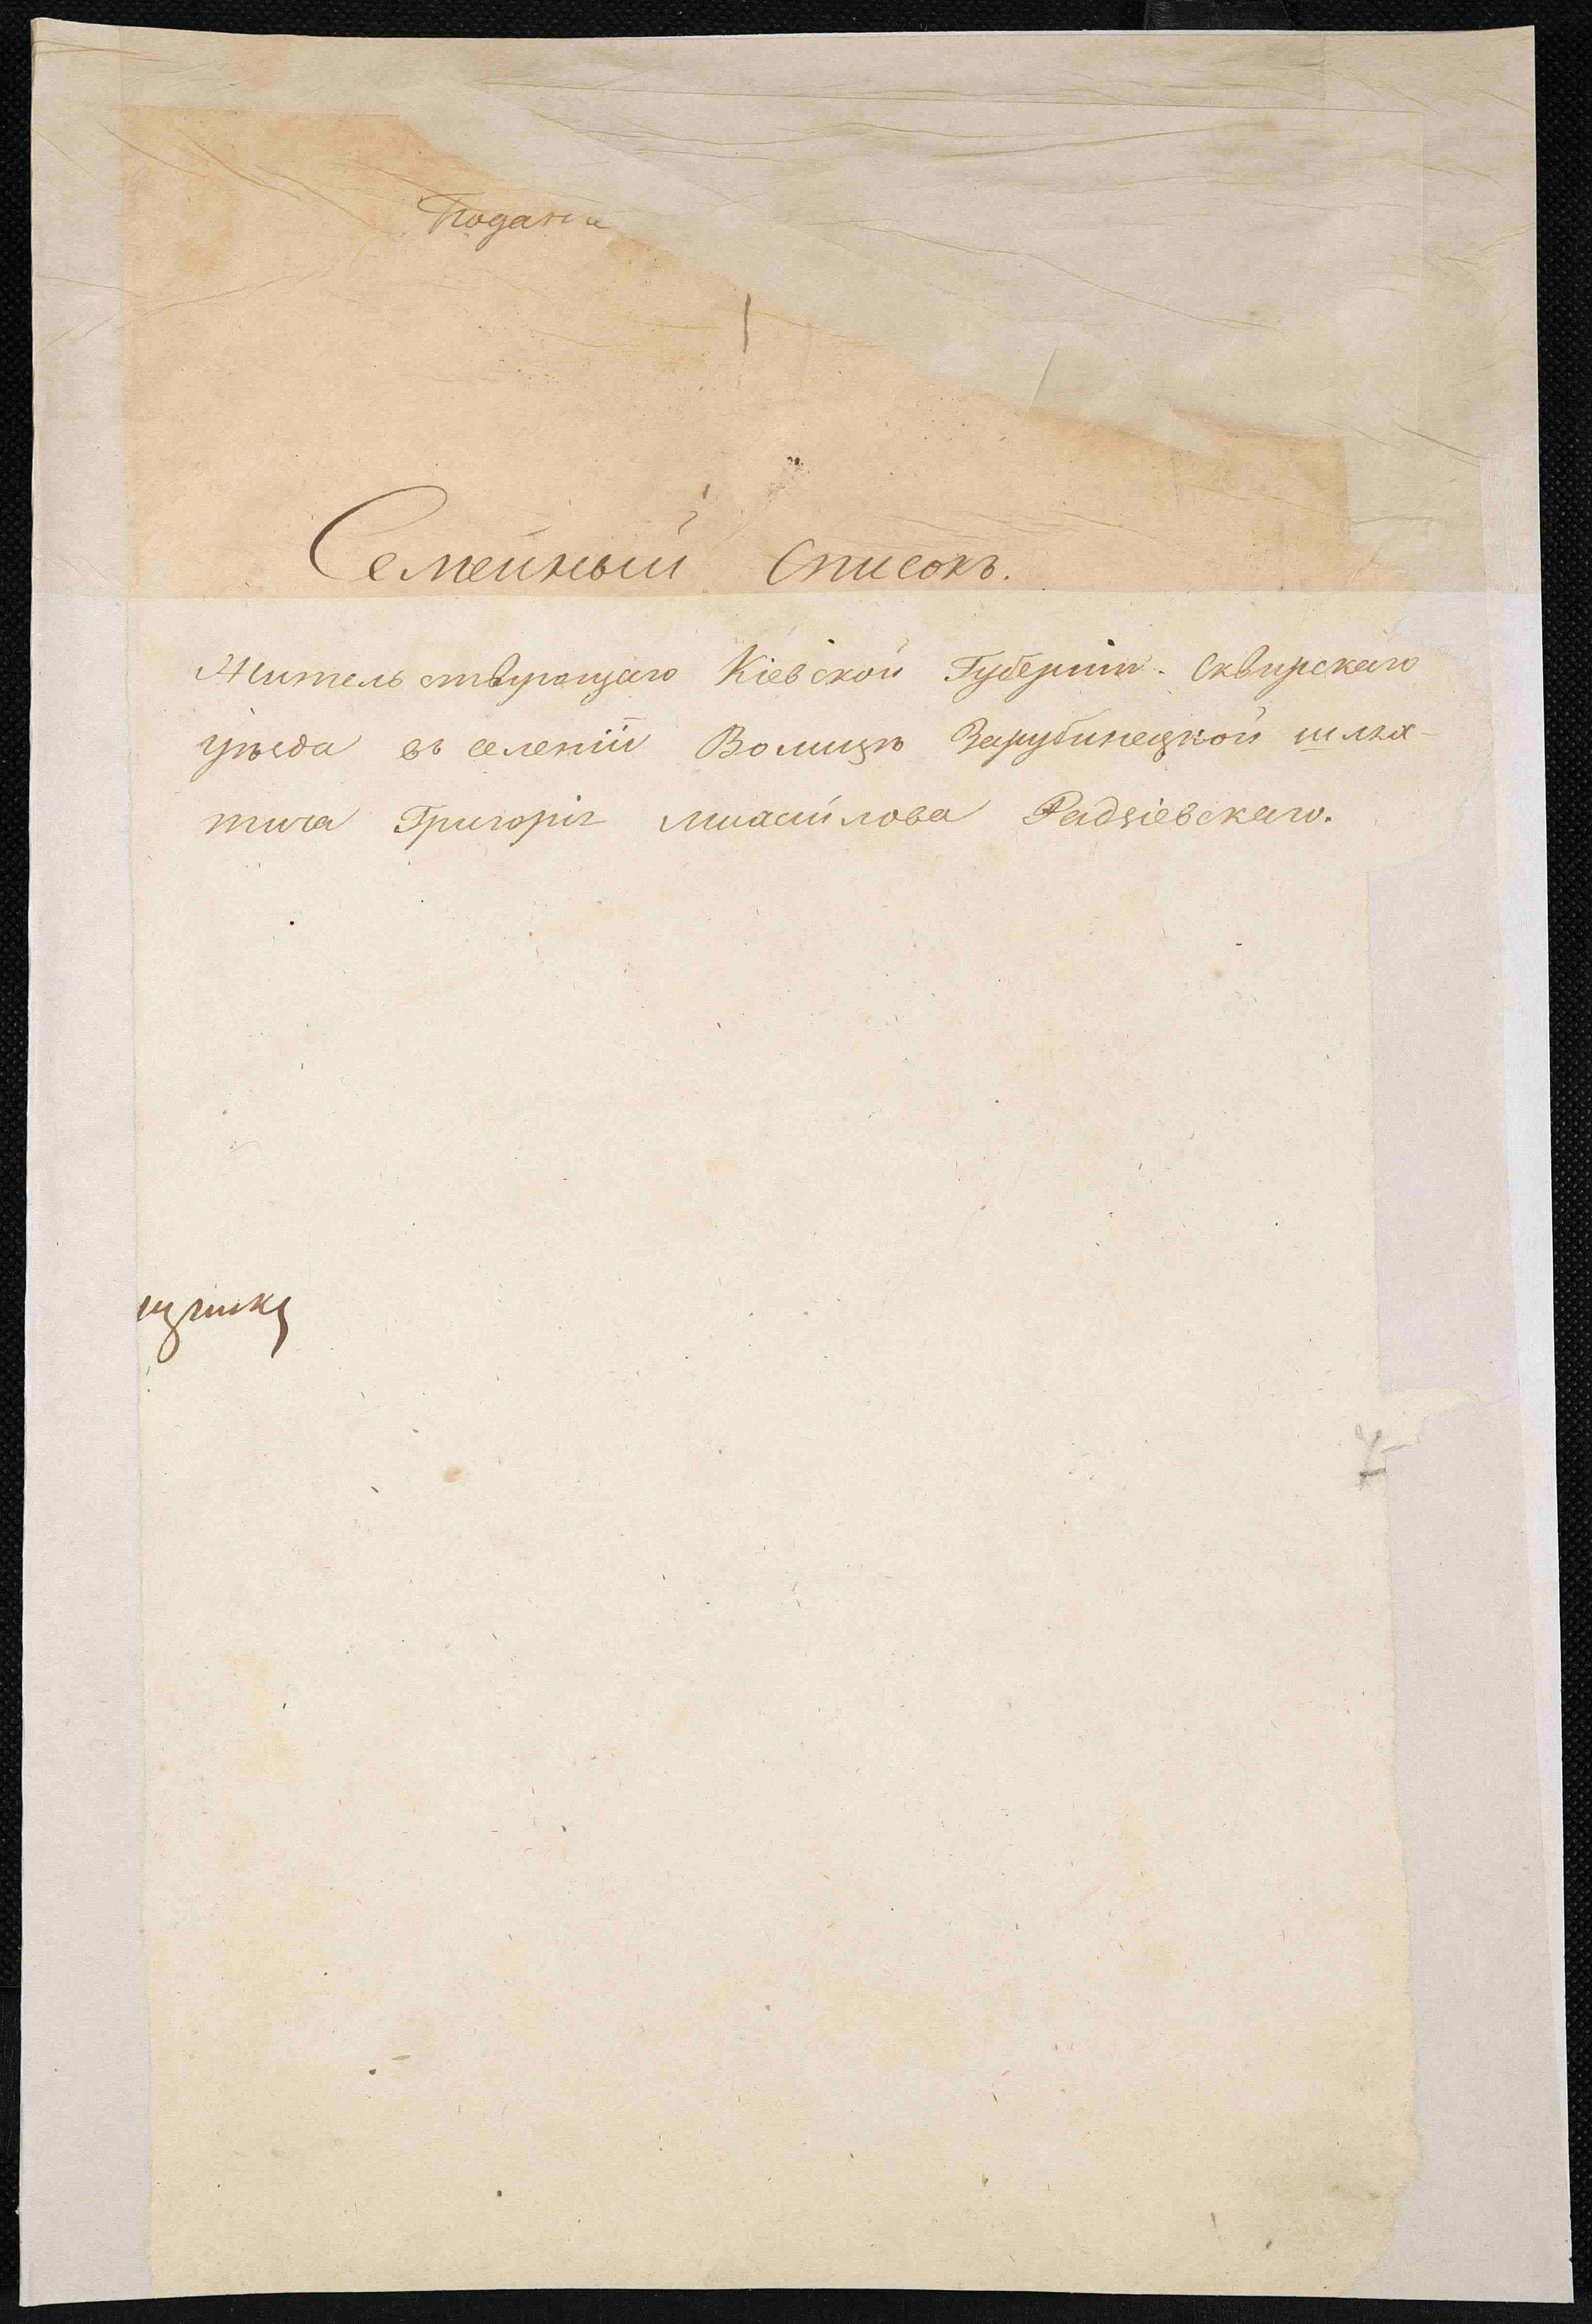 Подани
Семейный Списокъ.
Жительствующаго Кіевской Губерніи. Сквирскаго
уѣзда въ селеніи Волицѣ Зарубинецкой шлях-
тича Григорія Михайлова Радзіевскаго.